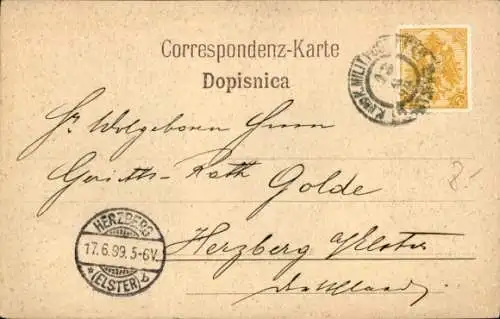 Correspondenz-Karte
Dopisnica
Sr Wolgeboren Herrn
Gerichts-Rath Golde
Herzberg Elster
Deutschland
HERZBERG
17.6.99.5-6V.
* (ELSTER) b